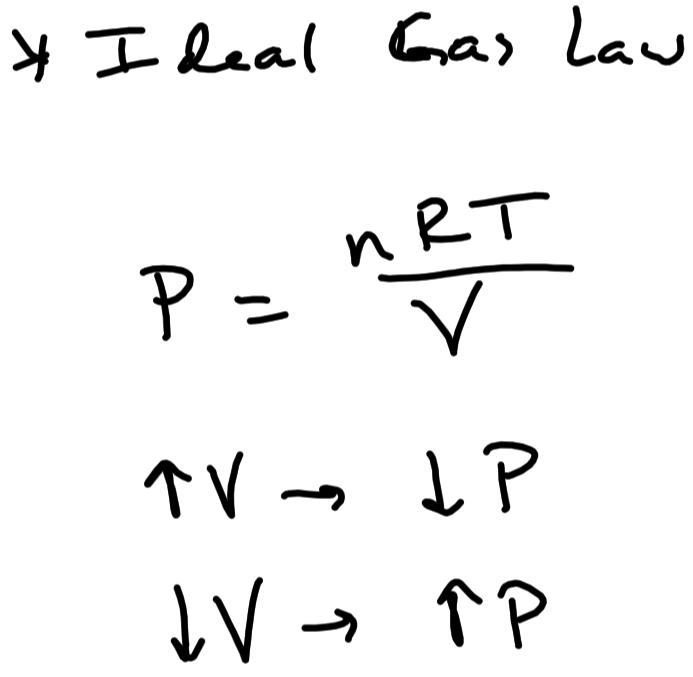 * Ideal Gas Law
P = nRT / V
↑V → ↓P
↓V → ↑P